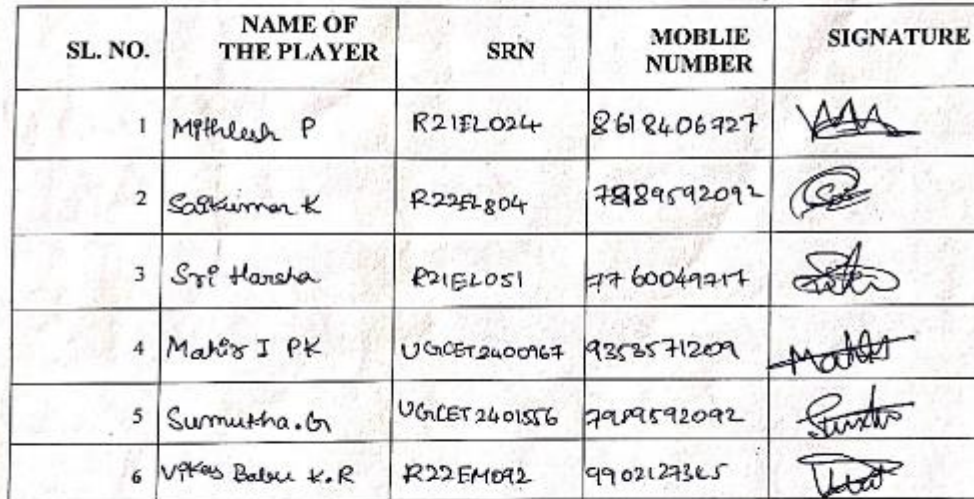 SL. NO. NAME OF THE PLAYER SRN MOBLIE NUMBER SIGNATURE
1 Mithlesh P R21EL024 8618406927
2 Saikumar K R22EL804
3 Sri Harsha R21EL051
4 Mahir I PK UGCET2400967 9353571209
5 Sumukha.G UGCET2401556 7989592092
6 Vikas Babu K.R R22EM092 9902127365